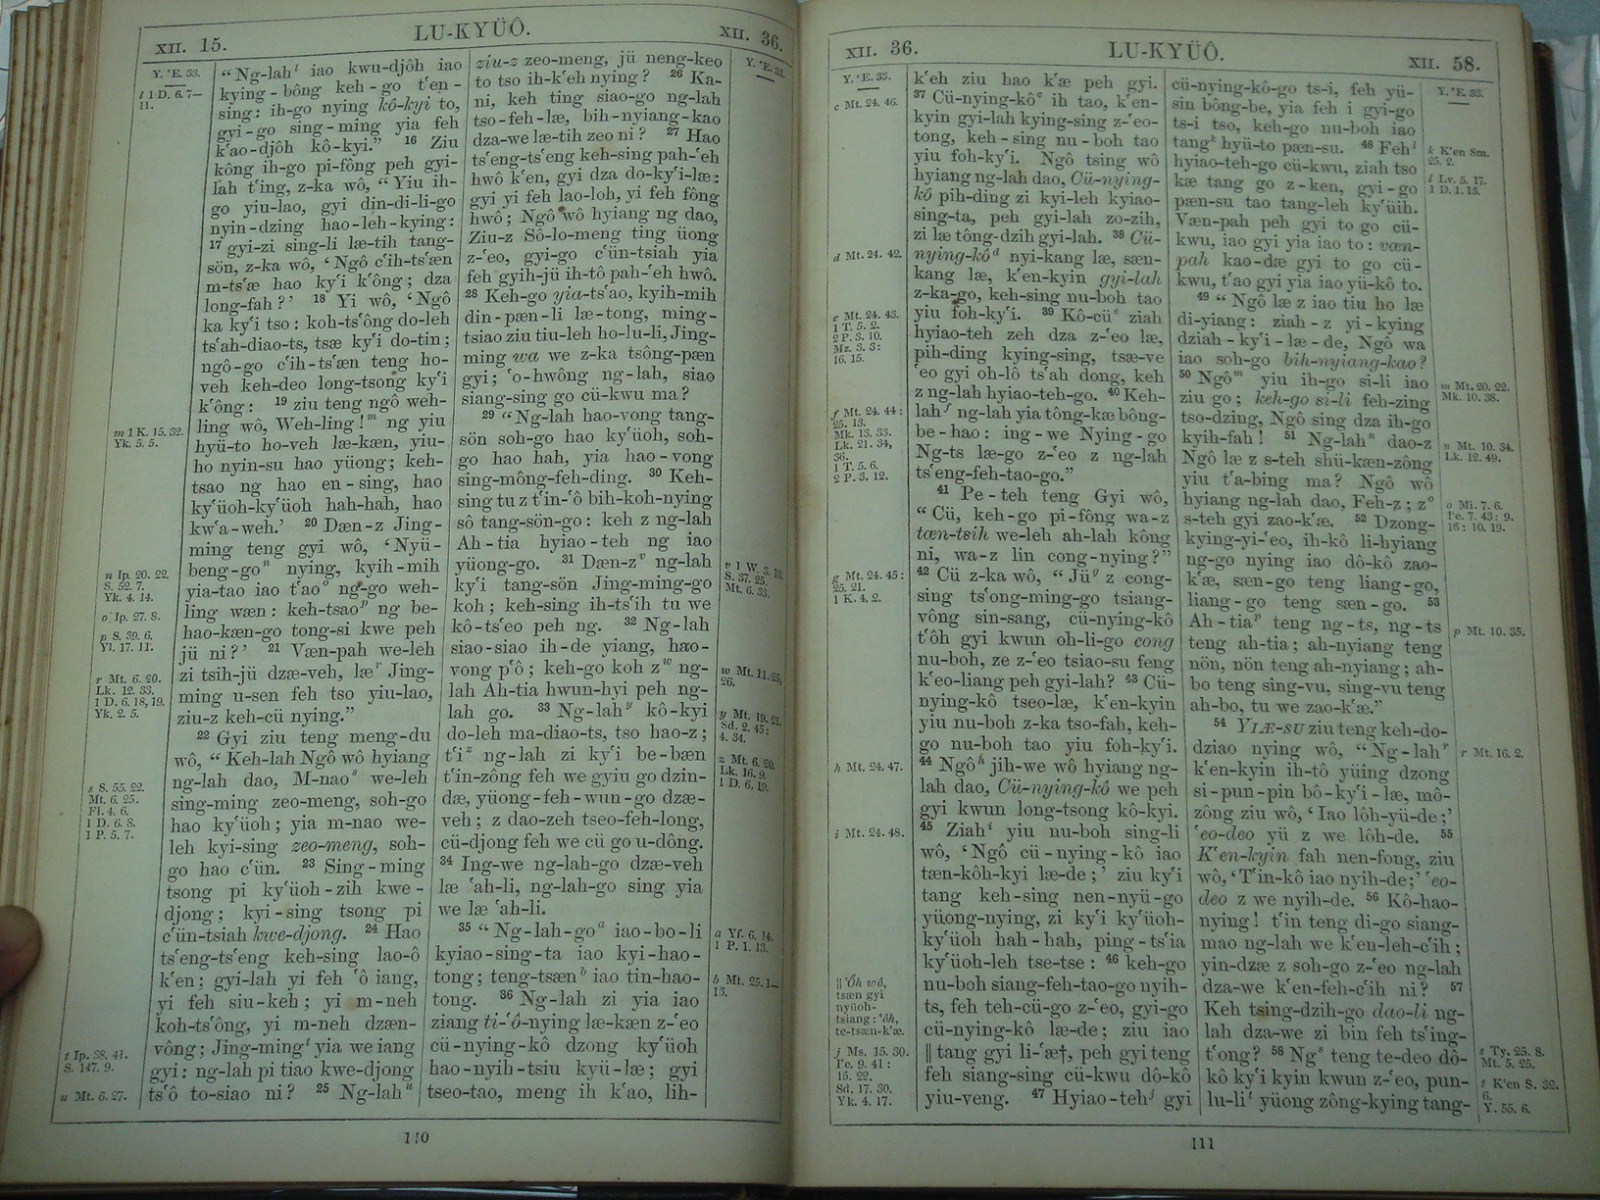 XII. 15.
LU-KYÜÔ.
XII. 36.
Y. ʻE. 33.
l 1 D. 6. 7–
11.
m 1 K. 15. 32.
Yk. 5. 5.
n Ip. 20. 22.
S. 52. 7.
Yk. 4. 14.
o Ip. 27. 8.
p S. 39. 6.
Yl. 17. 11.
r Mt. 6. 20.
Lk. 12. 33.
1 D. 6. 18, 19.
Yk. 2. 5.
s S. 55. 22.
Mt. 6. 25.
Fl. 4. 6.
1 D. 6. 8.
1 P. 5. 7.
t Ip. 38. 41.
S. 147. 9.
u Mt. 6. 27.
“Ng-lahˡ iao kwu-djôh iao
kying-bông keh-go tʻen-
sing: ih-go nying kô-kyi to,
gyi-go sing-ming yia feh
kʻao-djôh kô-kyi.” 16 Ziu
kông ih-go pi-fông peh gyi-
lah tʻing, z-ka wô, “Yiu ih-
go yiu-lao, gyi din-di-li-go
nyin-dzing hao-leh-kying:
17 gyi-zi sing-li læ-tih tang-
sön, z-ka wô, ‘Ngô cʻih-tsʻæn
m-tsʻæ hao kyʻi kʻông; dza
long-fah?’ 18 Yi wô, ‘Ngô
ka kyʻi tso: koh-tsʻông do-leh
tsʻah-diao-ts, tsæ kyʻi do-tin;
ngô-go cʻih-tsʻæn teng ho-
veh keh-deo long-tsong kyʻi
kʻông: 19 ziu teng ngô weh-
ling wô, Weh-ling!ᵐ ng yiu
hyü-to ho-veh læ-kæn, yiu-
ho nyin-su hao yüong; keh-
tsao ng hao en-sing, hao
kyʻüoh-kyʻüoh hah-hah, hao
kwʻa-weh.’ 20 Dæn-z Jing-
ming teng gyi wô, ‘Nyü-
beng-goⁿ nying, kyih-mih
yia-tao iao tʻaoᵒ ng-go weh-
ling wæn: keh-tsaoᵖ ng be-
hao-kæn-go tong-si kwe peh
jü ni?’ 21 Væn-pah we-leh
zi tsih-jü dzæ-veh, læʳ Jing-
ming u-sen feh tso yiu-lao,
ziu-z keh-cü nying.”
22 Gyi ziu teng meng-du
wô, “Keh-lah Ngô wô hyiang
ng-lah dao, M-naoˢ we-leh
sing-ming zeo-meng, soh-go
hao kyʻüoh; yia m-nao we-
leh kyi-sing zeo-meng, soh-
go hao cʻün. 23 Sing-ming
tsong pi kyʻüoh-zih kwe-
djong; kyi-sing tsong pi
cʻün-tsiah kwe-djong. 24 Hao
tsʻeng-tsʻeng keh-sing lao-ô
kʻen; gyi-lah yi feh ʻô iang,
yi feh siu-keh; yi m-neh
koh-tsʻông, yi m-neh dzæn-
vông; Jing-mingᵗ yia we iang
gyi: ng-lah pi tiao kwe-djong
tsʻô to-siao ni? 25 Ng-lahᵘ
ziu-z zeo-meng, jü neng-keo
to tso ih-kʻeh nying? 26 Ka-
ni, keh ting siao-go ng-lah
tso-feh-læ, bih-nyiang-kao
dza-we læ-tih zeo ni? 27 Hao
tsʻeng-tsʻeng keh-sing pah-ʻeh
hwô kʻen, gyi dza do-kyʻi-læ:
gyi yi feh lao-loh, yi feh fông
hwô; Ngô wô hyiang ng dao,
Ziu-z Sô-lo-meng ting üong
z-ʻeo, gyi-go cʻün-tsiah yia
feh gyih-jü ih-tô pah-ʻeh hwô.
28 Keh-go yia-tsʻao, kyih-mih
din-pæn-li læ-tong, ming-
tsiao ziu tiu-leh ho-lu-li, Jing-
ming wa we z-ka tsông-pæn
gyi; ʻo-hwông ng-lah, siao
siang-sing go cü-kwu ma?
29 “Ng-lah hao-vong tang-
sön soh-go hao kyʻüoh, soh-
go hao hah, yia hao-vong
sing-mông-feh-ding. 30 Keh-
sing tu z tʻin-ʻô bih-koh-nying
sô tang-sön-go: keh z ng-lah
Ah-tia hyiao-teh ng iao
yüong-go. 31 Dæn-zᵛ ng-lah
kyʻi tang-sön Jing-ming-go
koh; keh-sing ih-tsʻih tu we
kô-tsʻeo peh ng. 32 Ng-lah
siao-siao ih-de yiang, hao-
vong pʻô; keh-go koh zʷ ng-
lah Ah-tia hwun-hyi peh ng-
lah go. 33 Ng-lahʸ kô-kyi
do-leh ma-diao-ts, tso hao-z;
tʻiᶻ ng-lah zi kyʻi be-bæn
tʻin-zông feh we gyiu go dzin-
dæ, yüong-feh-wun-go dzæ-
veh; z dao-zeh tseo-feh-long,
cü-djong feh we cü go u-dông.
34 Ing-we ng-lah-go dzæ-veh
læ ʻah-li, ng-lah-go sing yia
we læ ʻah-li.
35 “Ng-lah-goᵃ iao-bo-li
kyiao-sing-ta iao kyi-hao-
tong; teng-tsænᵇ iao tin-hao-
tong. 36 Ng-lah zi yia iao
ziang ti-ʻô-nying læ-kæn z-ʻeo
cü-nying-kô dzong kyʻüoh
hao-nyih-tsiu kyü-læ; gyi
tseo-tao, meng ih kʻao, lih-
Y. ʻE. 33.
v 1 W. 3. 13.
S. 37. 25.
Mt. 6. 33.
w Mt. 11. 25,
26.
y Mt. 19. 21.
Sd. 2. 45:
4. 34.
z Mt. 6. 20.
Lk. 16. 9.
1 D. 6. 19.
a Yf. 6. 14.
1 P. 1. 13.
b Mt. 25. 1–
13.
110
XII. 36.
LU-KYÜÔ.
XII. 58.
Y. ʻE. 33.
c Mt. 24. 46.
d Mt. 24. 42.
e Mt. 24. 43.
1 T. 5. 2.
2 P. 3. 10.
Mz. 3. 3:
16. 15.
f Mt. 24. 44:
25. 13.
Mk. 13. 33.
Lk. 21. 34,
36.
1 T. 5. 6.
2 P. 3. 12.
g Mt. 24. 45:
25. 21.
1 K. 4. 2.
h Mt. 24. 47.
i Mt. 24. 48.
‖ ʻÔh wô,
tsæn gyi
nyüoh-
tsiang: ʻôh,
te-tsæn-kʻæ.
j Ms. 15. 30.
Iʻe. 9. 41:
15. 22.
Sd. 17. 30.
Yk. 4. 17.
kʻeh ziu hao kʻæ peh gyi.
37 Cü-nying-kôᶜ ih tao, kʻen-
kyin gyi-lah kying-sing z-ʻeo-
tong, keh-sing nu-boh tao
yiu foh-kyʻi. Ngô tsing wô
hyiang ng-lah dao, Cü-nying-
kô pih-ding zi kyi-leh kyiao-
sing-ta, peh gyi-lah zo-zih,
zi læ tông-dzih gyi-lah. 38 Cü-
nying-kôᵈ nyi-kang læ, sæn-
kang læ, kʻen-kyin gyi-lah
z-ka-go, keh-sing nu-boh tao
yiu foh-kyʻi. 39 Kô-cüᵉ ziah
hyiao-teh zeh dza z-ʻeo læ,
pih-ding kying-sing, tsæ-ve
ʻeo gyi oh-lô tsʻah dong, keh
z ng-lah hyiao-teh-go. 40 Keh-
lahᶠ ng-lah yia tông-kæ bông-
be-hao: ing-we Nying-go
Ng-ts læ-go z-ʻeo z ng-lah
tsʻeng-feh-tao-go.”
41 Pe-teh teng Gyi wô,
“Cü, keh-go pi-fông wa-z
tæn-tsih we-leh ah-lah kông
ni, wa-z lin cong-nying?”
42 Cü z-ka wô, “Jüᵍ z cong-
sing tsʻong-ming-go tsiang-
vông sin-sang, cü-nying-kô
tʻôh gyi kwun oh-li-go cong
nu-boh, ze z-ʻeo tsiao-su feng
kʻeo-liang peh gyi-lah? 43 Cü-
nying-kô tseo-læ, kʻen-kyin
yiu nu-boh z-ka tso-fah, keh-
go nu-boh tao yiu foh-kyʻi.
44 Ngôʰ jih-we wô hyiang ng-
lah dao, Cü-nying-kô we peh
gyi kwun long-tsong kô-kyi.
45 Ziahⁱ yiu nu-boh sing-li
wô, ‘Ngô cü-nying-kô iao
tæn-kôh-kyi læ-de;’ ziu kyʻi
tang keh-sing nen-nyü-go
yüong-nying, zi kyʻi kyʻüoh-
kyʻüoh hah-hah, ping-tsʻia
kyʻüoh-leh tse-tse: 46 keh-go
nu-boh siang-feh-tao-go nyih-
ts, feh teh-cü-go z-ʻeo, gyi-go
cü-nying-kô læ-de; ziu iao
‖ tang gyi li-ʻæ†, peh gyi teng
feh siang-sing cü-kwu dô-kô
yiu-veng. 47 Hyiao-tehʲ gyi
cü-nying-kô-go ts-i, feh yü-
sin bông-be, yia feh i gyi-go
ts-i tso, keh-go nu-boh iao
tangᵏ hyü-to pæn-su. 48 Fehˡ
hyiao-teh-go cü-kwu, ziah tso
kæ tang go z-ken, gyi-go
pæn-su tao tang-leh kyʻüih.
Væn-pah peh gyi to go cü-
kwu, iao gyi yia iao to: væn-
pah kao-dæ gyi to go cü-
kwu, tʻao gyi yia iao yü-kô to.
49 “Ngô læ z iao tiu ho læ
di-yiang: ziah-z yi-kying
dziah-kyʻi-læ-de, Ngô wa
iao soh-go bih-nyiang-kao?
50 Ngôᵐ yiu ih-go si-li iao
ziu go; keh-go si-li feh-zing
tso-dzing, Ngô sing dza ih-go
kyih-fah! 51 Ng-lahⁿ dao-z
Ngô læ z s-teh shü-kæn-zông
yiu tʻa-bing ma? Ngô wô
hyiang ng-lah dao, Feh-z; zᵒ
s-teh gyi zao-kʻæ. 52 Dzong-
kying-yi-ʻeo, ih-kô li-hyiang
ng-go nying iao dô-kô zao-
kʻæ, sæn-go teng liang-go,
liang-go teng sæn-go. 53
Ah-tiaᵖ teng ng-ts, ng-ts
teng ah-tia; ah-nyiang teng
nön, nön teng ah-nyiang; ah-
bo teng sing-vu, sing-vu teng
ah-bo, tu we zao-kʻæ.”
54 YIÆ-SU ziu teng keh-do-
dziao nying wô, “Ng-lahʳ
kʻen-kyin ih-tô yüing dzong
si-pun-pin bô-kyʻi-læ, mô-
zông ziu wô, ‘Iao lôh-yü-de;’
ʻeo-deo yü z we lôh-de. 55
Kʻen-kyin fah nen-fong, ziu
wô, ‘Tʻin-kô iao nyih-de;’ ʻeo-
deo z we nyih-de. 56 Kô-hao-
nying! tʻin teng di-go siang-
mao ng-lah we kʻen-leh-cʻih;
yin-dzæ z soh-go z-ʻeo ng-lah
dza-we kʻen-feh-cʻih ni? 57
Keh tsing-dzih-go dao-li ng-
lah dza-we zi bin feh tsʻing-
tʻong? 58 Ngˢ teng te-deo dô-
kô kyʻi kyin kwun z-ʻeo, pun-
lu-liᵗ yüong zông-kying tang-
Y. ʻE. 33.
k Kʻen Sm.
25. 2.
l Lv. 5. 17.
1 D. 1. 13.
m Mt. 20. 22.
Mk. 10. 38.
n Mt. 10. 34.
Lk. 12. 49.
o Mi. 7. 6.
Iʻe. 7. 43: 9.
16: 10. 19.
p Mt. 10. 35.
r Mt. 16. 2.
s Ty. 25. 8.
Mt. 5. 25.
t Kʻen S. 32.
6.
Y. 55. 6.
111